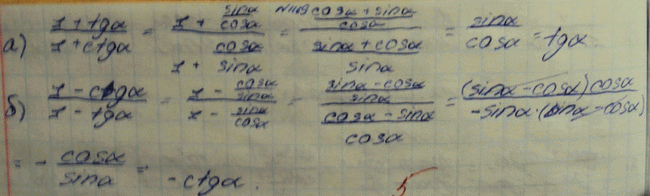 N1169
а) (1 + tgα)/(1 + ctgα) = (1 + sinα/cosα)/(1 + cosα/sinα) = ((cosα + sinα)/cosα)/((sinα + cosα)/sinα) = sinα/cosα = tgα
б) (1 - ctgα)/(1 - tgα) = (1 - cosα/sinα)/(1 - sinα/cosα) = ((sinα - cosα)/sinα)/((cosα - sinα)/cosα) = ((sinα - cosα)cosα)/(-sinα·(sinα - cosα))
= - cosα/sinα = -ctgα.
5